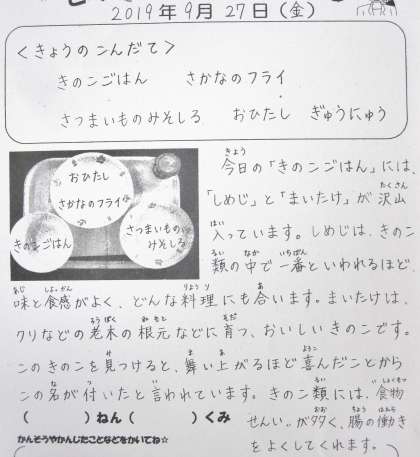 2019年9月27日(金)
<きょうのこんだて>
きのこごはん さかなのフライ
さつまいものみそしる おひたし ぎゅうにゅう
おひたし
さかなのフライ
きのこごはん
さつまいもの
みそしる
今日の「きのこごはん」には、
「しめじ」と「まいたけ」が沢山
入っています。しめじは、きのこ
類の中で一番といわれるほど、
味と食感がよく、どんな料理にも合います。まいたけは、
クリなどの老木の根元などに育つ、おいしいきのこです。
このきのこを見つけると、舞い上がるほど喜んだことから
この名が付いたと言われています。きのこ類には"食物
せんい"が多く、腸の働き
をよくしてくれます。
( )ねん( )くみ
かんそうやかんじたことなどをかいてね☆